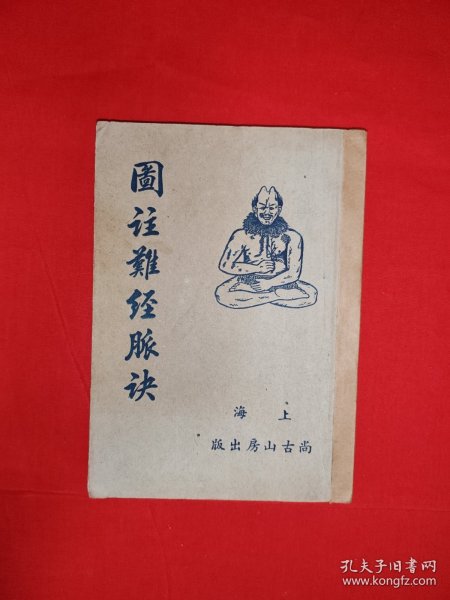 圖註難經脈訣
海 上
版出房山古尚
孔夫子旧书网
www.kongfz.com